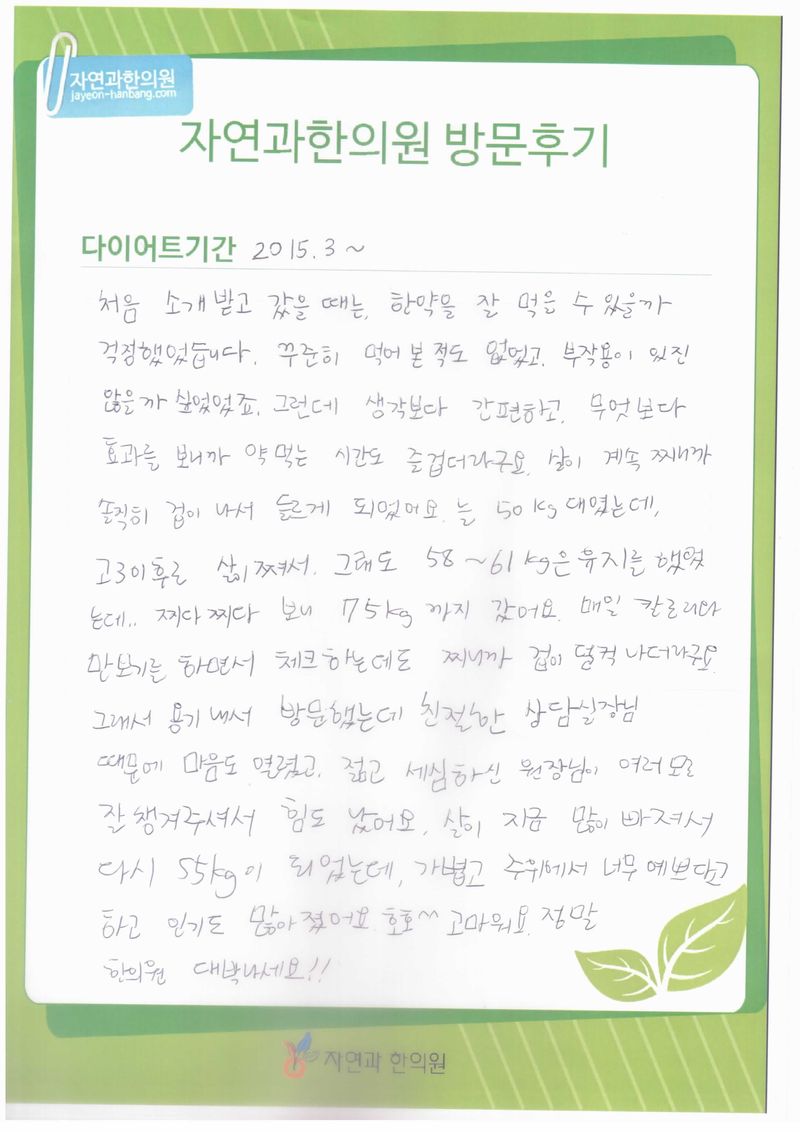 자연과한의원
jayeon-hanbang.com
자연과한의원 방문후기
다이어트기간 2015.3 ~
처음 소개받고 갔을 때는, 한약을 잘 먹을 수 있을까
걱정했었습니다. 꾸준히 먹어 본 적도 없었고, 부작용이 있진
않을까 싶었었죠. 그런데 생각보다 간편하고, 무엇보다
효과를 보니까 약 먹는 시간도 즐겁더라구요. 살이 계속 찌니까
솔직히 겁이 나서 들르게 되었어요. 늘 50kg대였는데,
고3이후로 살이 쪄서. 그래도 58~61kg은 유지를 했었
는데.. 찌다 찌다 보니 75kg까지 갔어요. 매일 칼로리와
만보기를 하면서 체크하는데도 찌니까 겁이 덜컥 나더라구요.
그래서 용기내서 방문했는데 친절한 상담실장님
때문에 마음도 열렸고, 젊고 세심하신 원장님이 여러모로
잘 챙겨주셔서 힘도 났어요. 살이 지금 많이 빠져서
다시 55kg이 되었는데, 가볍고 주위에서 너무 예쁘다고
하고 인기도 많아졌어요. 호호^^ 고마워요. 정말
한의원 대박나세요!!
자연과 한의원